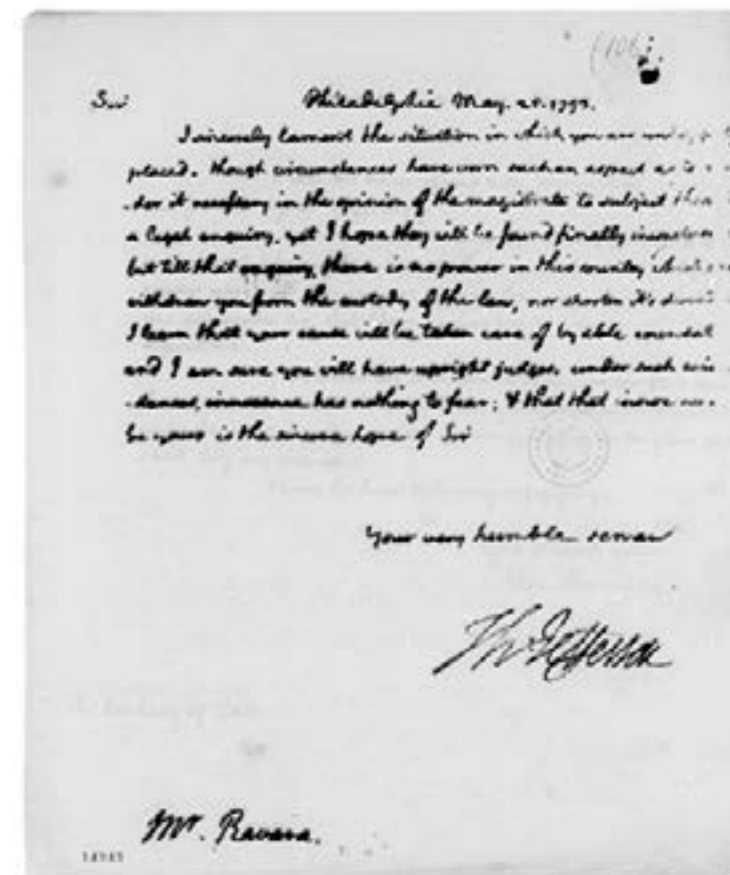 (106)
Sir Philadelphia May. 21. 1793.
I sincerely lament the situation in which you are
placed. though circumstances have worn such an aspect as to
-der it necessary in the opinion of the magistrate to subject them
a legal enquiry, yet I hope they will be found finally
but till that enquiry, there is no power in this country which
withdraw you from the custody of the law, nor shorten it's
I learn that your cause will be taken care of by able counsel
and I am sure you will have upright judges. under such
-stances, innocence has nothing to fear; & that that
be yours is the sincere hope of Sir
Your very humble servan
Th Jefferson
Mr. Ravara.